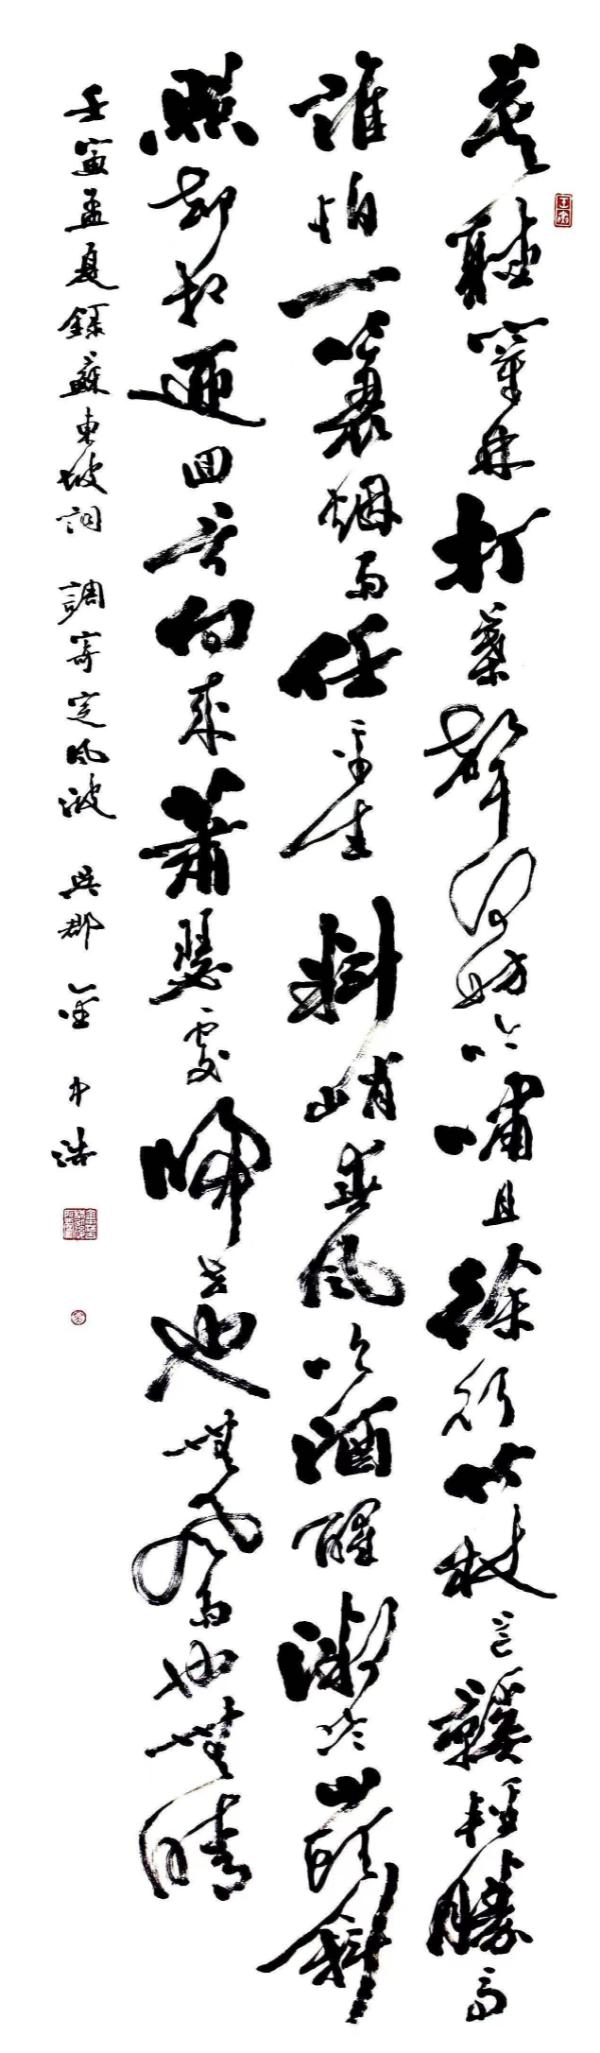 莫聽穿林打葉聲何妨吟嘯且徐行竹杖芒鞵輕勝馬
誰怕一簑烟雨任平生料峭春風吹酒醒微冷山頭斜
照却相迎回首向來蕭瑟處歸去也無風雨也無晴
壬寅孟夏錄蘇東坡詞 調寄定風波 吳郡 金中浩